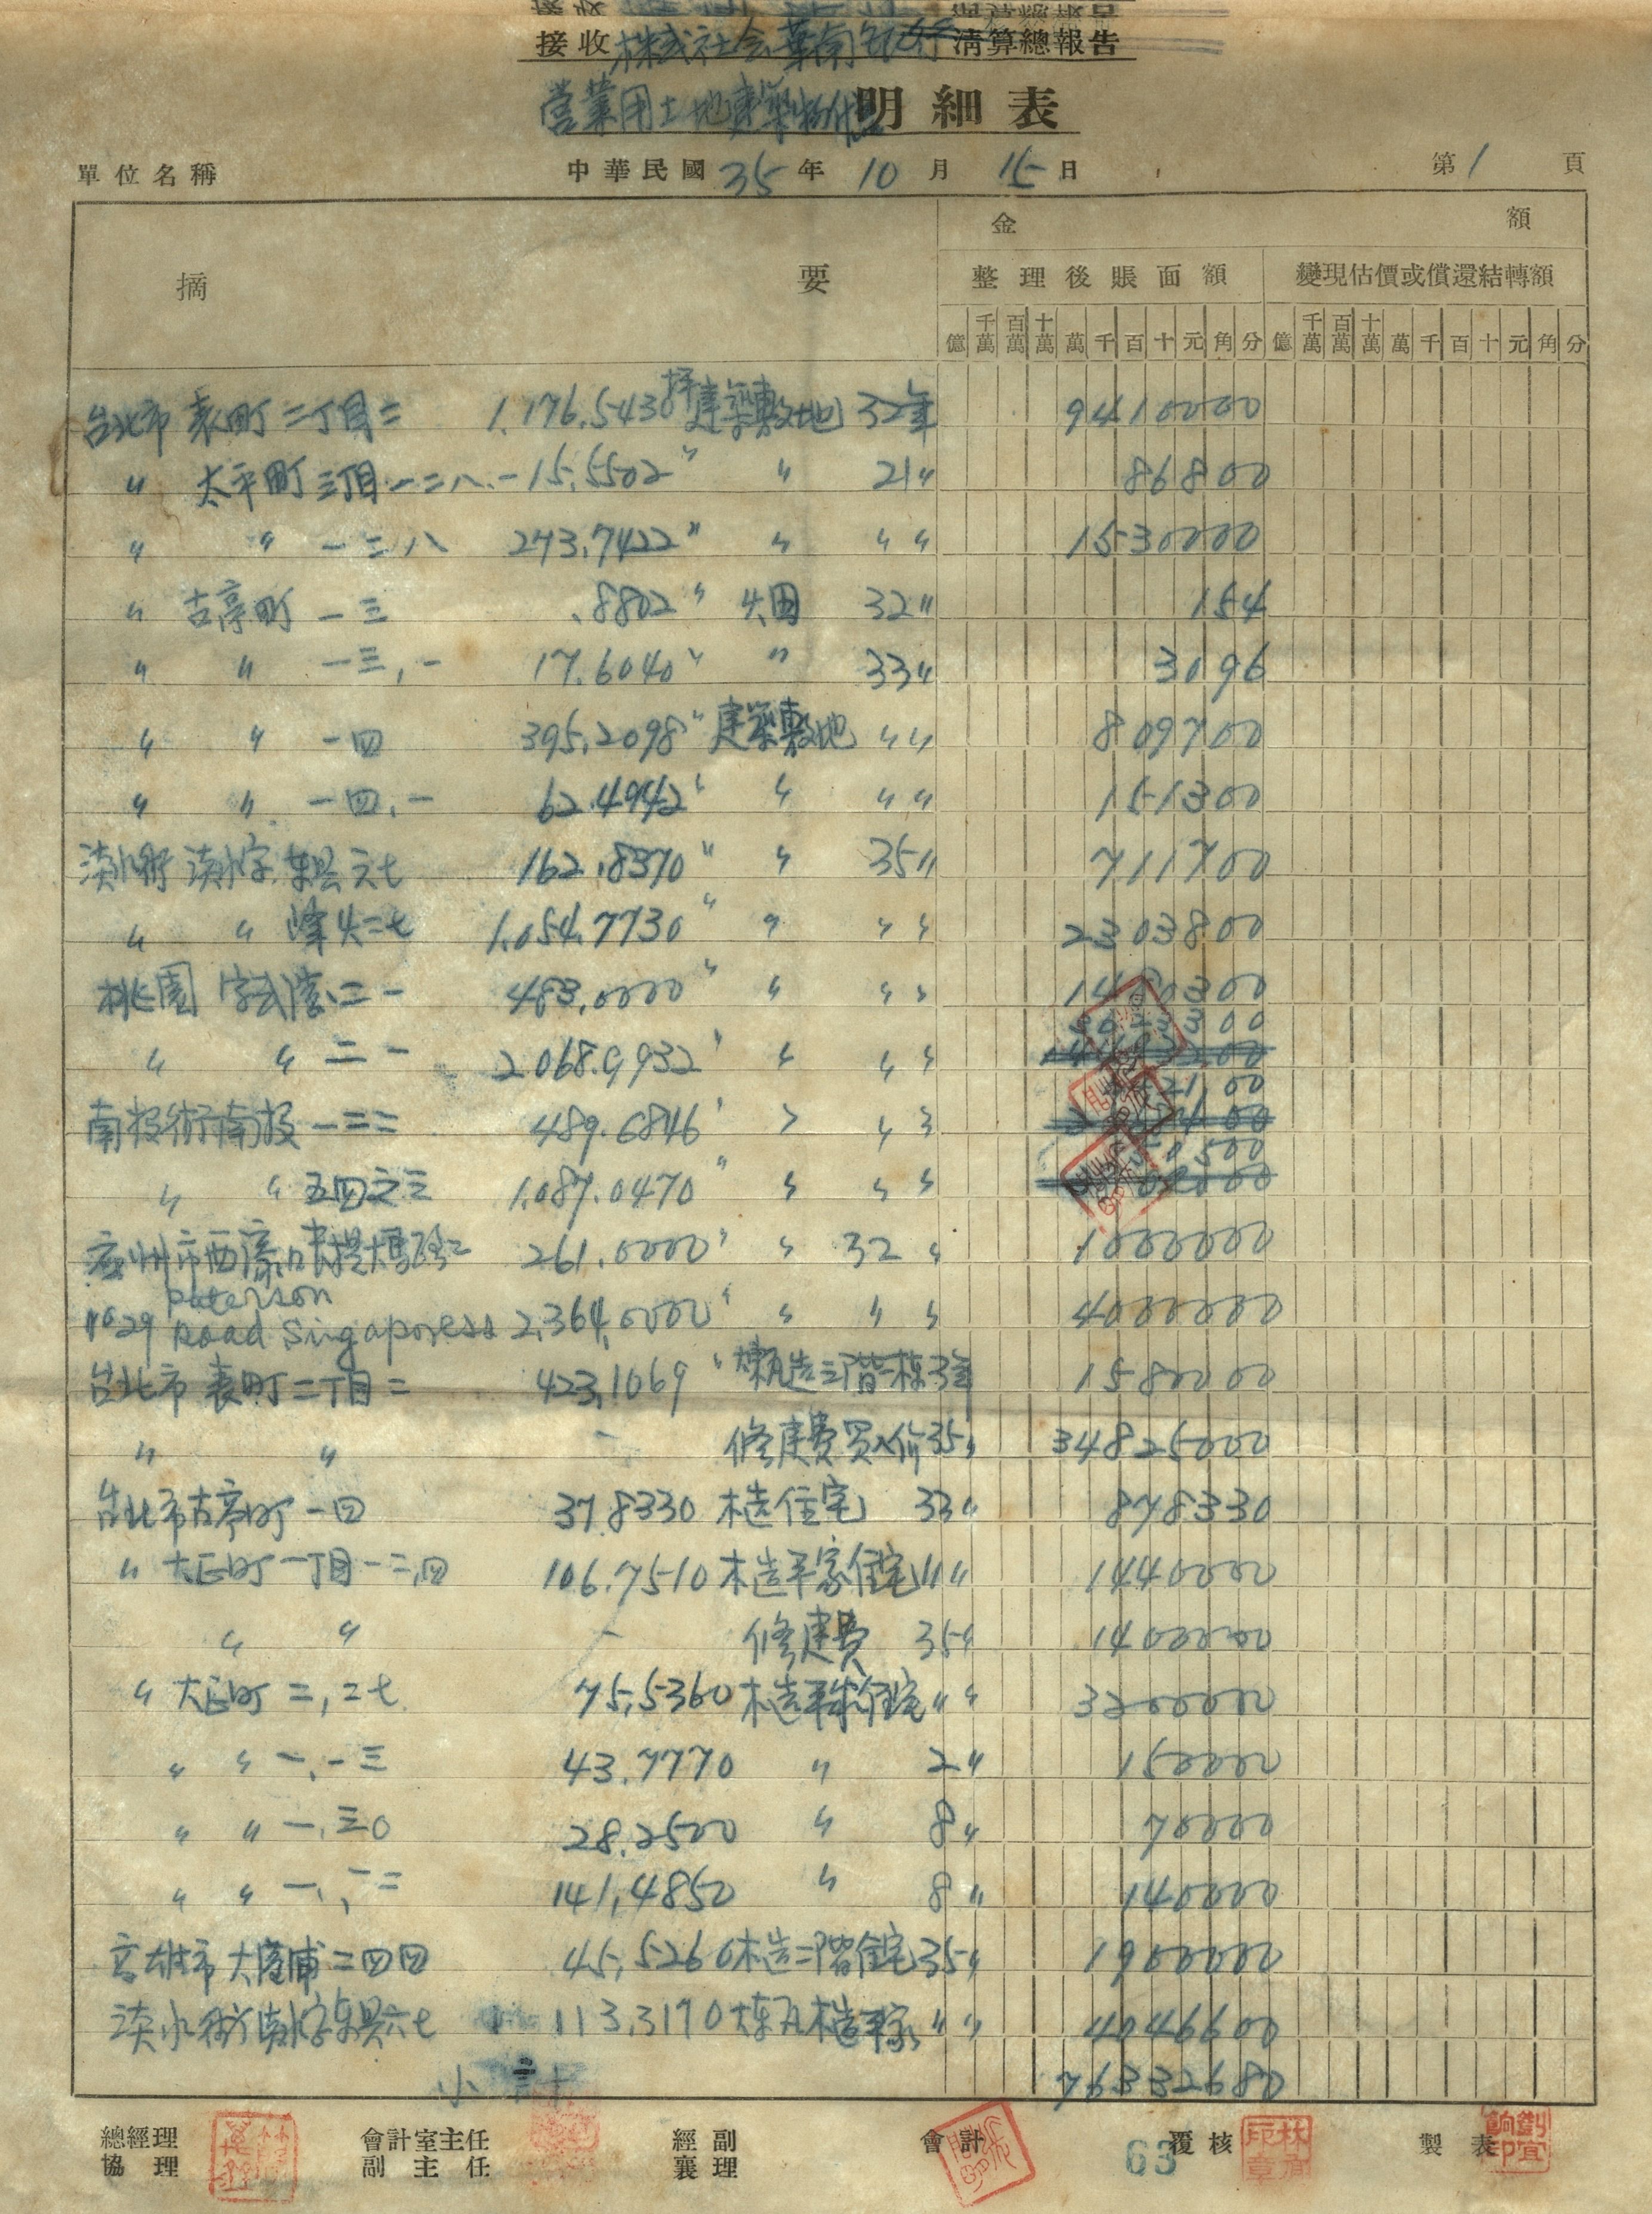 接收株式社会華南銀行清算總報告
営業用土地建築物価明細表
單位名稱 中華民國35年10月15日 第1頁
摘要 金額
整理後賬面額 變現估價或償還結轉額
億 千萬 百萬 十萬 萬 千 百 十 元 角 分 億 千萬 百萬 十萬 萬 千 百 十 元 角 分
台北市 表町二丁目二 1,176.5430坪 建築敷地 32年 9410000
〃 太平町三丁目一二八、一 15.5502〃 〃 21〃 86800
〃 〃 一二八 273.7422〃 〃 〃〃 1530000
〃 古亭町 一三 .8802〃 32〃 154
〃 〃 一三,一 17.6040〃 〃 33〃 3096
〃 〃 一四 395.2098〃 建築敷地 〃〃 809700
〃 〃 一四、一 62.4942〃 〃 〃〃 151300
淡水街 淡水字 六七 162.8370〃 〃 35〃 711700
〃 〃 二七 1,054.7730〃 〃 〃〃 2303800
桃園 二一 483.0000〃 〃 〃〃 300
〃 〃 二一 2,068.9932〃 〃 〃〃
南投街南投 一二二 489.6846〃 〃 〃〃
〃 〃 五四之三 1,087.0470〃 〃 〃〃
廣州市西濠口長堤大馬路 261.0000〃 〃 32〃 1000000
No29 Paterson Road Singapore 2,364.0000〃 〃 〃〃 4000000
台北市 表町二丁目二 423.1069〃 煉瓦造三階一棟 1580000
〃 〃 - 修建費買入价 35〃 34825000
台北市古亭町一四 37.8330 木造住宅 33〃 878330
〃 大正町一丁目一二,四 106.7510 木造平家住宅 11〃 1440000
〃 〃 - 修建費 35〃 1400000
〃 大正町二,二七 75.5360 木造平家住宅 〃〃 3200000
〃 〃 一、一三 43.7770 〃 2〃 150000
〃 〃 一、三〇 28.2500 〃 8〃 70000
〃 〃 一、一二 141.4850 〃 8〃 140000
高雄市 二四四 45.5260 木造二階住宅 35〃 1900000
淡水街淡水字 六七 113.3170 煉瓦木造平家 〃〃 4046600
小計 76332680
總經理 協理 會計室主任 副主任 經副襄理 會計 63 覆核 製表